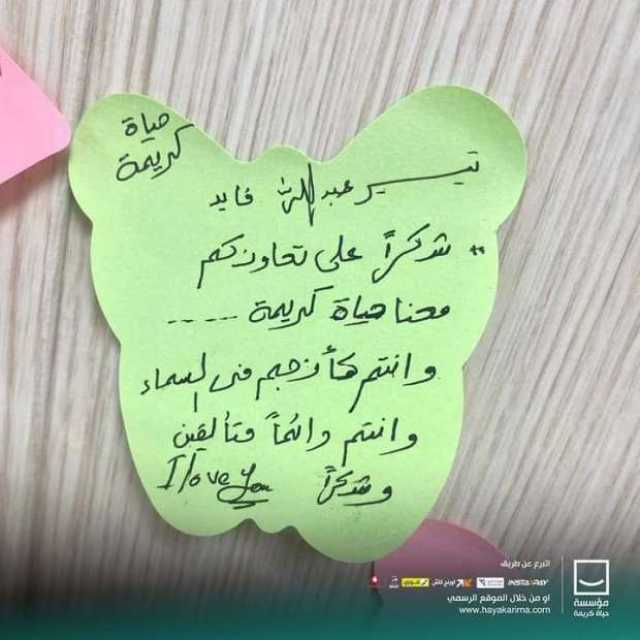 حياة
كريمة
تيسير عبد الله فايد
" شكراً على تعاونكم
معنا حياة كريمة -----
وانتم كأنجم فى السماء
وانتم دائماً متألقين
وشكراً I love you
التبرع عن طريق
INSTAPAY
او من خلال الموقع الرسمي
www.hayakarima.com
مؤسسة
حياة كريمة